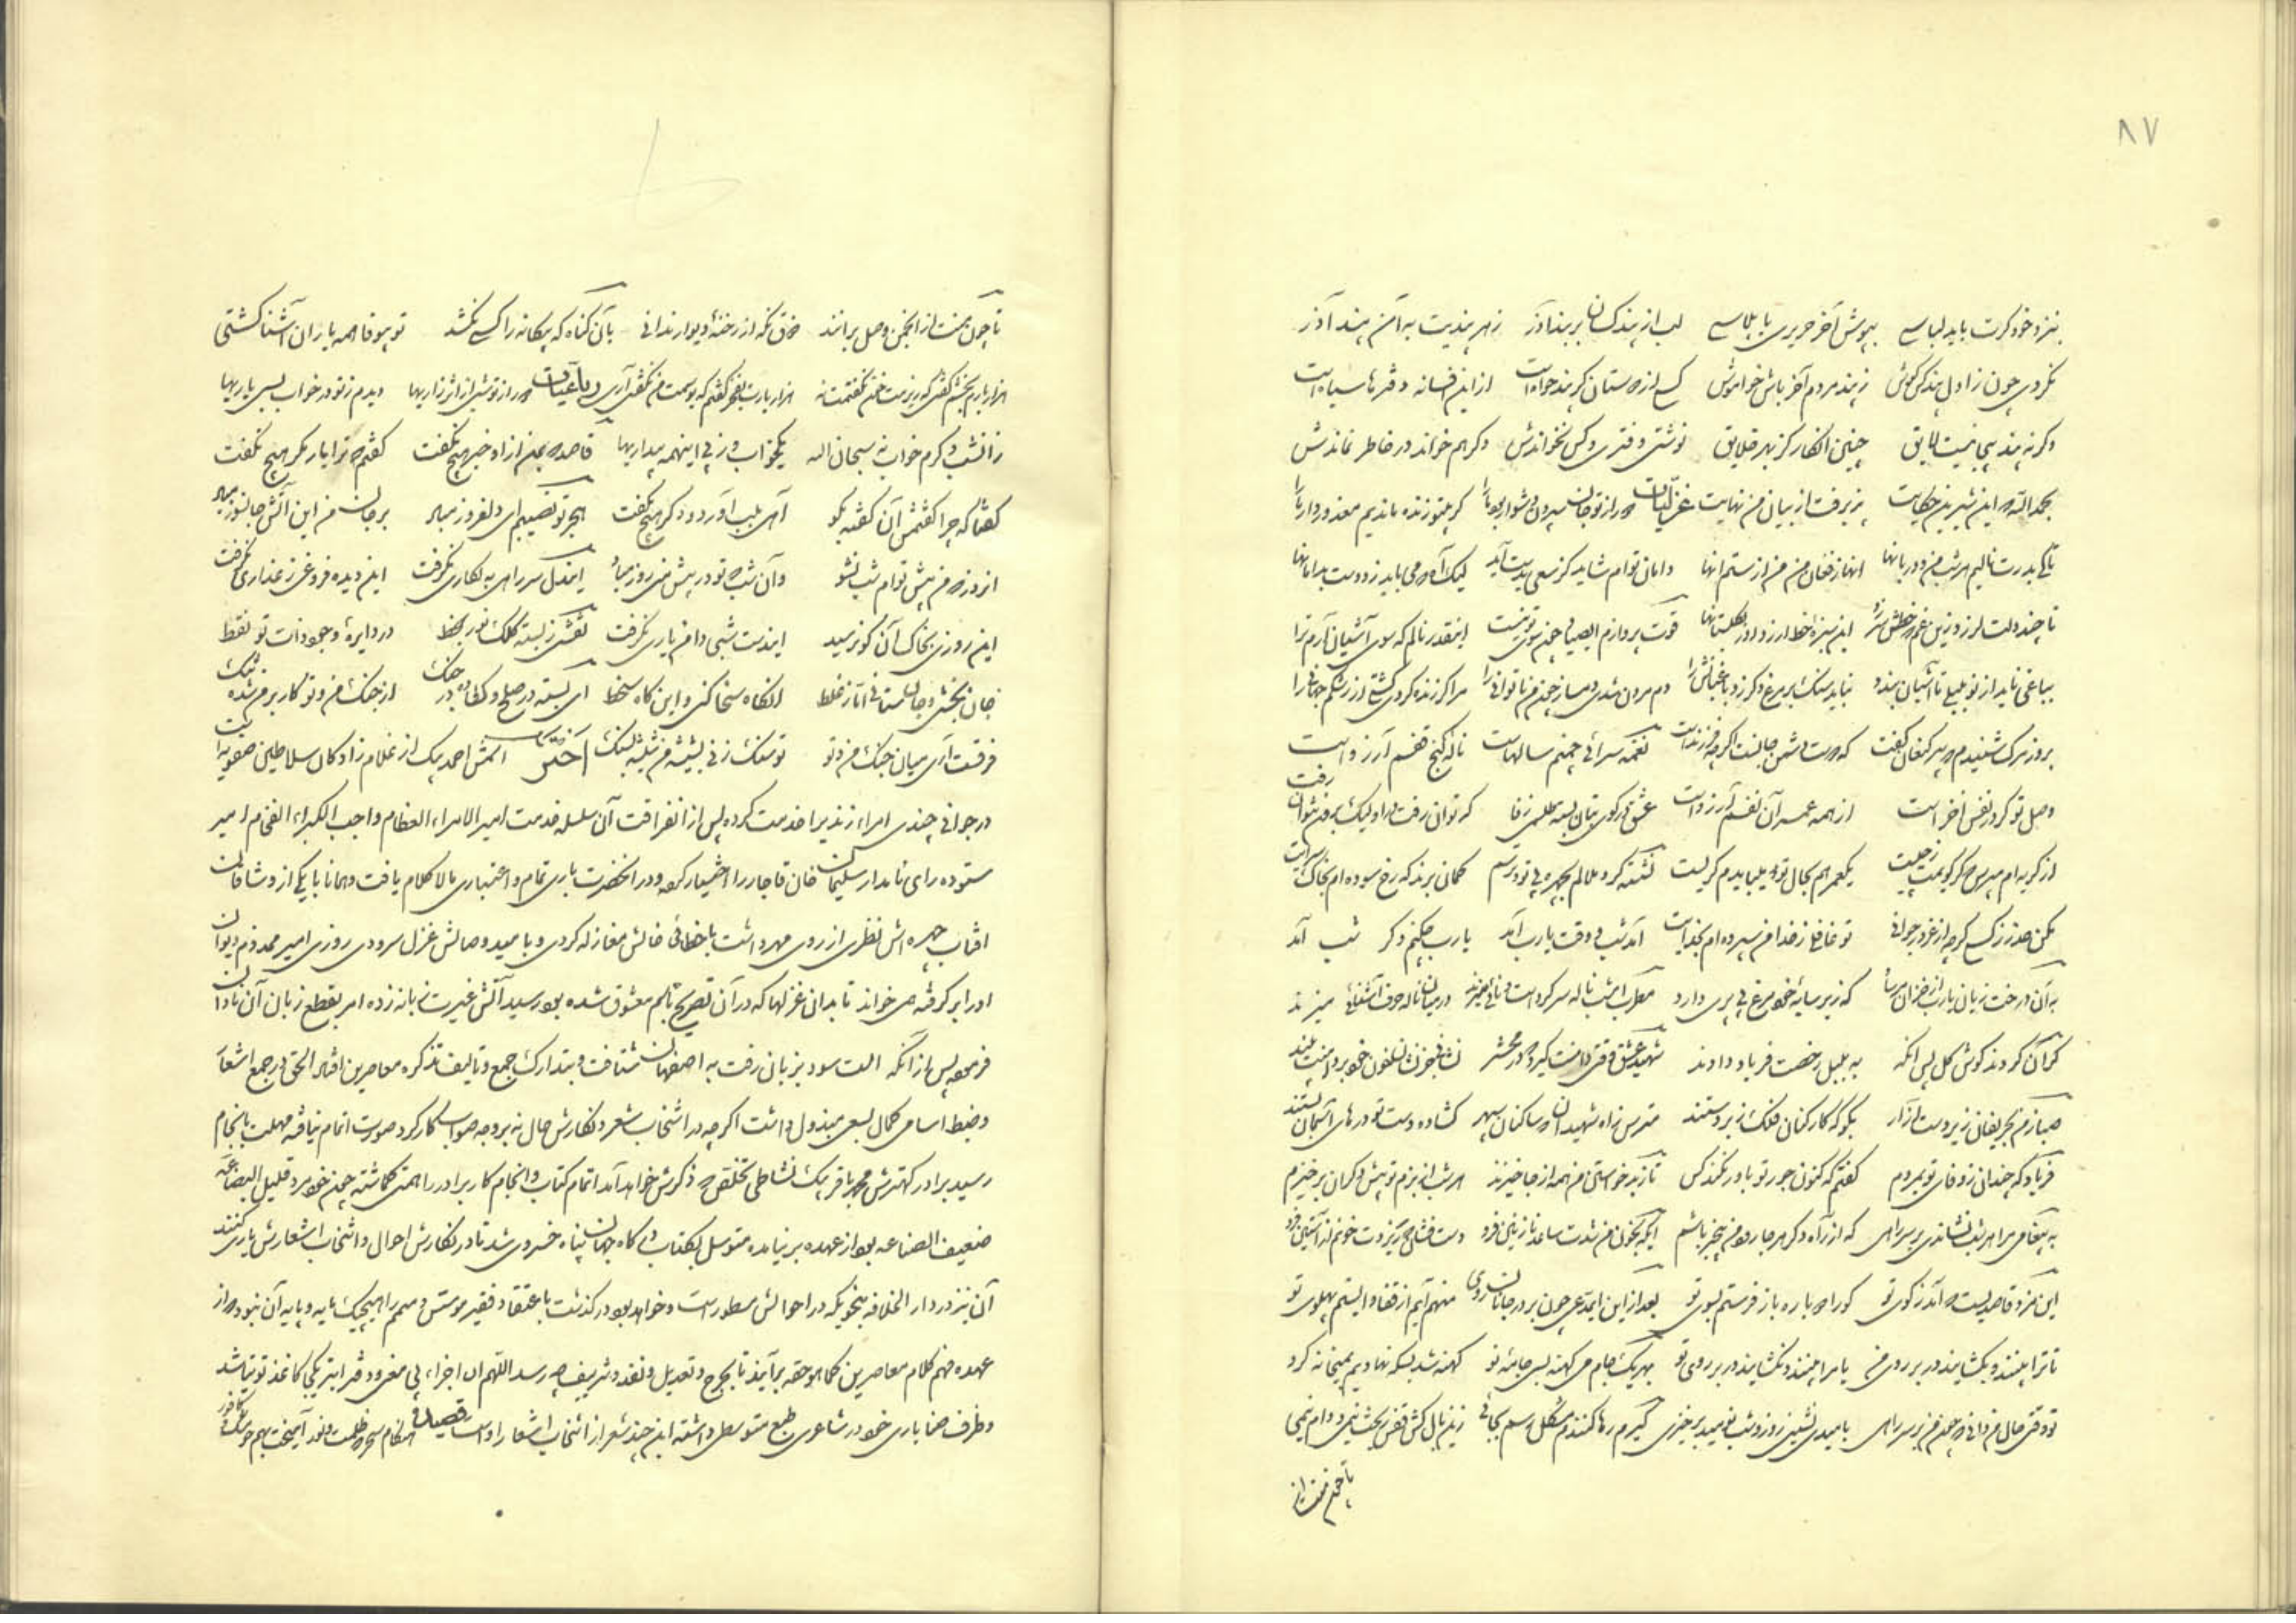 ۸۷
بنزد خود کرت باید لباسی بپوش آخر حریری یا پلاسی لب از پند کسان بر بند آذر زهر پندیت به آمن پند آذر
نکردی چون ز اول پند کس گوش ز پند مردم آخر باش خاموش کسی از دوستان کر پند خواه است از این افسانه دفترها سیاه است
وگرنه پند بیجا نیست لایق چنین انگار کز بهر خلایق نوشتی دفتری و کس نخواندش وگر هم خواند در خاطر نماندش
بحمدالله که این شیرین حکایت پذیرفت از بیان من نهایت غزلیات که راز تو جان سپردن دشوار بود ما را گر بیتو زنده ماندیم معذور دار ما را
تا کی بدرت نالیم هر شب من و دربانها آنها ز فغان من من از ستم آنها دامان توام شاید کز سعی بدست آید لیک آه که می باید زد دست بدامانها
تا چند دلت لرزد زین غم که خطش سر زد این سبزه خط آرزد بگلستانها قوت پروازم ای صیاد چون سوی تو نیست اینقدر نالم که سوی آشیان آرم ترا
بباغی ناید از نو بلبلی تا آشیان بندد نباید سنگ بر مرغ دگر زد باغبانش را دم مردن شدی دمساز چون من ناتوانی را مرا گر زنده کردی کشتی از رشکم جهانی را
بروز مرگ شنیدم که پیر کنعان گفت که دوست دشمن جانست اگر چه فرزند است نغمه سرائی چمنم سالهاست ناله کنج قفسم آرزو است
وصل تو کر در نفس آخر است از همه عمر آن نفسم آرزو است عشق در کوی بتان بسته طلسمی ز وفا که توان رفت در او لیک برون نتوان رفت
از گریه ام مپرس که کر گویمت ز چیست یکعمر هم بحال تو باید گریست نشسته گرد ملالم بچهره بی تو و ترسم گمان برند که رخ سوده ام بخاک سرایت
مکن حذر ز کسی گر چه از غرور جوانی تو غافلی ز خدا من سپرده ام بخدایت آمد شب و وقت یارب آمد یارب چکنم دگر شب آمد
به آن درخت زیان یارب از خزان مرساد که زیر سایه خود مرغ بی پری دارد مطرب امشب ناله سر کرده است و نائی میزند در میان ناله حرف آشنائی میزند
گران کردند گوش گل پس آنگه به بلبل رخصت فریاد دادند شهید عشق وقتی دامنت گیرد که در محشر نشانی خون تسلفون خود بر دامنت بیند
صبا ز من بحریفان زیردست آزار بگو که کارکنان فلک زبردستند مترس ز آه شهیدان که ساکنان سپهر گشاده دست تو درهای آسمان بستند
فریاد که چندان ز وفای تو بمردم گفتم که کنون جور تو باور نکند کس تا ز بدخواستی من همه از جا خیزند هر شب از بزم تو پیش دگران برخیزم
به پیغامی مرا هر شب نشاندی بر سر راهی که از راه دگر هر جا روی من بیخبر باشم ایکه بخون من زدت ساعد نازنین فرو دست فشان که ریزدت خونم از آستین فرو
این مزد قاصدیست که آمد ز کوی تو کو را دوباره باز فرستم بسوی تو بعد از این ای مدعی چون بر در جانان روی منهم آیم از قفا و ایستم پهلوی تو
تا ترا بینند و بگشایند در بر روی من یا مرا بینند و نگشایند در بر روی تو بهر یک جام می کهنه بسی جامه نو کهنه شد بسکه نهادیم بمیخانه گرو
تو وقتی حال من دانی که چون من بر سر راهی بامیدی نشینی روز و شب نومید برخیزی گیرم رها کنندم مشکل رسم بجائی زین بال کش قفس بخت نیمی و دام نیمی
تا چون منت از انجمن وصل برانند فرق نکه از رخنه دیوار ندانی بآن گناه که بیگانه را کسی نکشد تو بیوفا همه یاران آشنا کشتی
هزار بارم بخشم گفتی که ریزمت خون نگفتمت نه هزار بارت بعجز گفتم که بوسمت من نگفتی آری رباعیات دیدم ز تو در خواب بسی یاریها
زانشب دگرم خواب نه سبحان الله یکخواب و ز پی اینهمه بیداریها قاصد که بمن از او خبر هیچ نگفت گفتم که ترا یار مگر هیچ نگفت
گفتا که چرا گفتمش آن گفته بگو آهی بلب آورد و دگر هیچ نگفت هجر تو نصیبم ای دلفروز مباد بر جان من این آتش جانسوز مباد
آنروز که من پیش توام شب نشود وآن شب که تو در پیش منی روز مباد ایندل سر راهی به نگاری نگرفت این دیده فروغی ز عذاری نگرفت
این روزی بخاک آن کو نرسید ایندست شبی دامن یاری نگرفت نقشی ز بسته کلک نور بخط در دایره وجود ذات تو نقط
جان بخشی و جان ستانی آثار غلط آنگاه سخا کنی و این گاه سخط ای بسته در صلح و گشاده در جنگ از جنگ من و تو کار بر من شده تنگ
فرقست آری میان جنگ من و تو تو سنگ زنی بشیشه من شیشه بسنگ اختر اسمش احمد بیک از غلام زادگان سلاطین صفویه است
در جوانی چندی امراء زندیه را خدمت کرده پس از انقراض آن سلسله خدمت امیر الامراء العظام واجب الکبراء الفخام امیر
ستوده رای نامدار سلیمان خان قاجار را اختیار کرده و در آنحضرت باری تمام و اعتباری مالا کلام یافت و همانا با یکی از وشاقان
آفتاب چهره اش نظری از روی مهر داشت با خطائی خالش مغازله کردی و با مید وصالش غزل سرودی روزی امیر محمدوم دیوان
او را بر گرفته می خواند تا بدان غزلها که در آن تصریح باسم معشوق شده بود رسید آتش غیرت زبانه زده امر بقطع زبان آن نادان
فرمود پس از آنکه الت سود بزیان رفت به اصفهان شتافت و بتدارک جمع و تالیف تذکره معاصرین افتاد الحق در جمع اشعار
و ضبط اسامی کمال سعی مبذول داشت اگر چه در انتخاب شعر و نگارش حال نه بر وجه صواب کار کرد صورت اتمام نیافته مهلت بانجام
رسید برادر کهترش محمد باقر بیک نشاطی تخلص که ذکرش خواهد آمد اتمام کتاب و انجام کار برادر را همت گماشته چون خود مرد قلیل البضاعه
ضعیف الصناعه بود از عهده بر نیامده متوسل بکتاب درگاه جهان پناه خسروی شد تا در نگارش احوال و انتخاب اشعارش یاری کنند
آن نیز در دار الخلافه بنحویکه در احوالش مسطور است و خواهد بود درگذشت باعتقاد فقیر موسس و متمم را هیچیک مایه و پایه آن نبود که از
عهده فهم کلام معاصرین کما هو حقه برآیند تا بجرح و تعدیل و نقد و تزییف چه رسد اللهم ان اجزاء بی مغز و دفتر ابتر یکی کاغذ توتیا شد
و ظرف حنا باری خود در شاعری طبع متوسطی داشته این چند شعر از انتخاب اشعار اوست قصیده